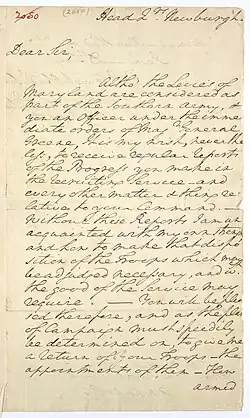 2060
(2060)
Head Qrs Newburgh
Dear Sir,
Altho. the Levies of
Maryland are considered as
part of the Southern Army, &
you an Officer under the imme
diate orders of Maj. General
Greene, it is my wish, never the
less, to receive regular Reports
of the Progress you make in
the recruiting Service and
every other matter & thing re
lative to your Command.—
Without these Reports I am un
acquainted with my own Strength
and how to make that dispo
sition of the Troops which may
be adjudged necessary, and wch.
the good of the Service may
require. — You will be plea
sed therefore, and as the plan
of Campaign must speedily
be determined on, to give me
a return of your Troops—the
appointments of them—How
armed